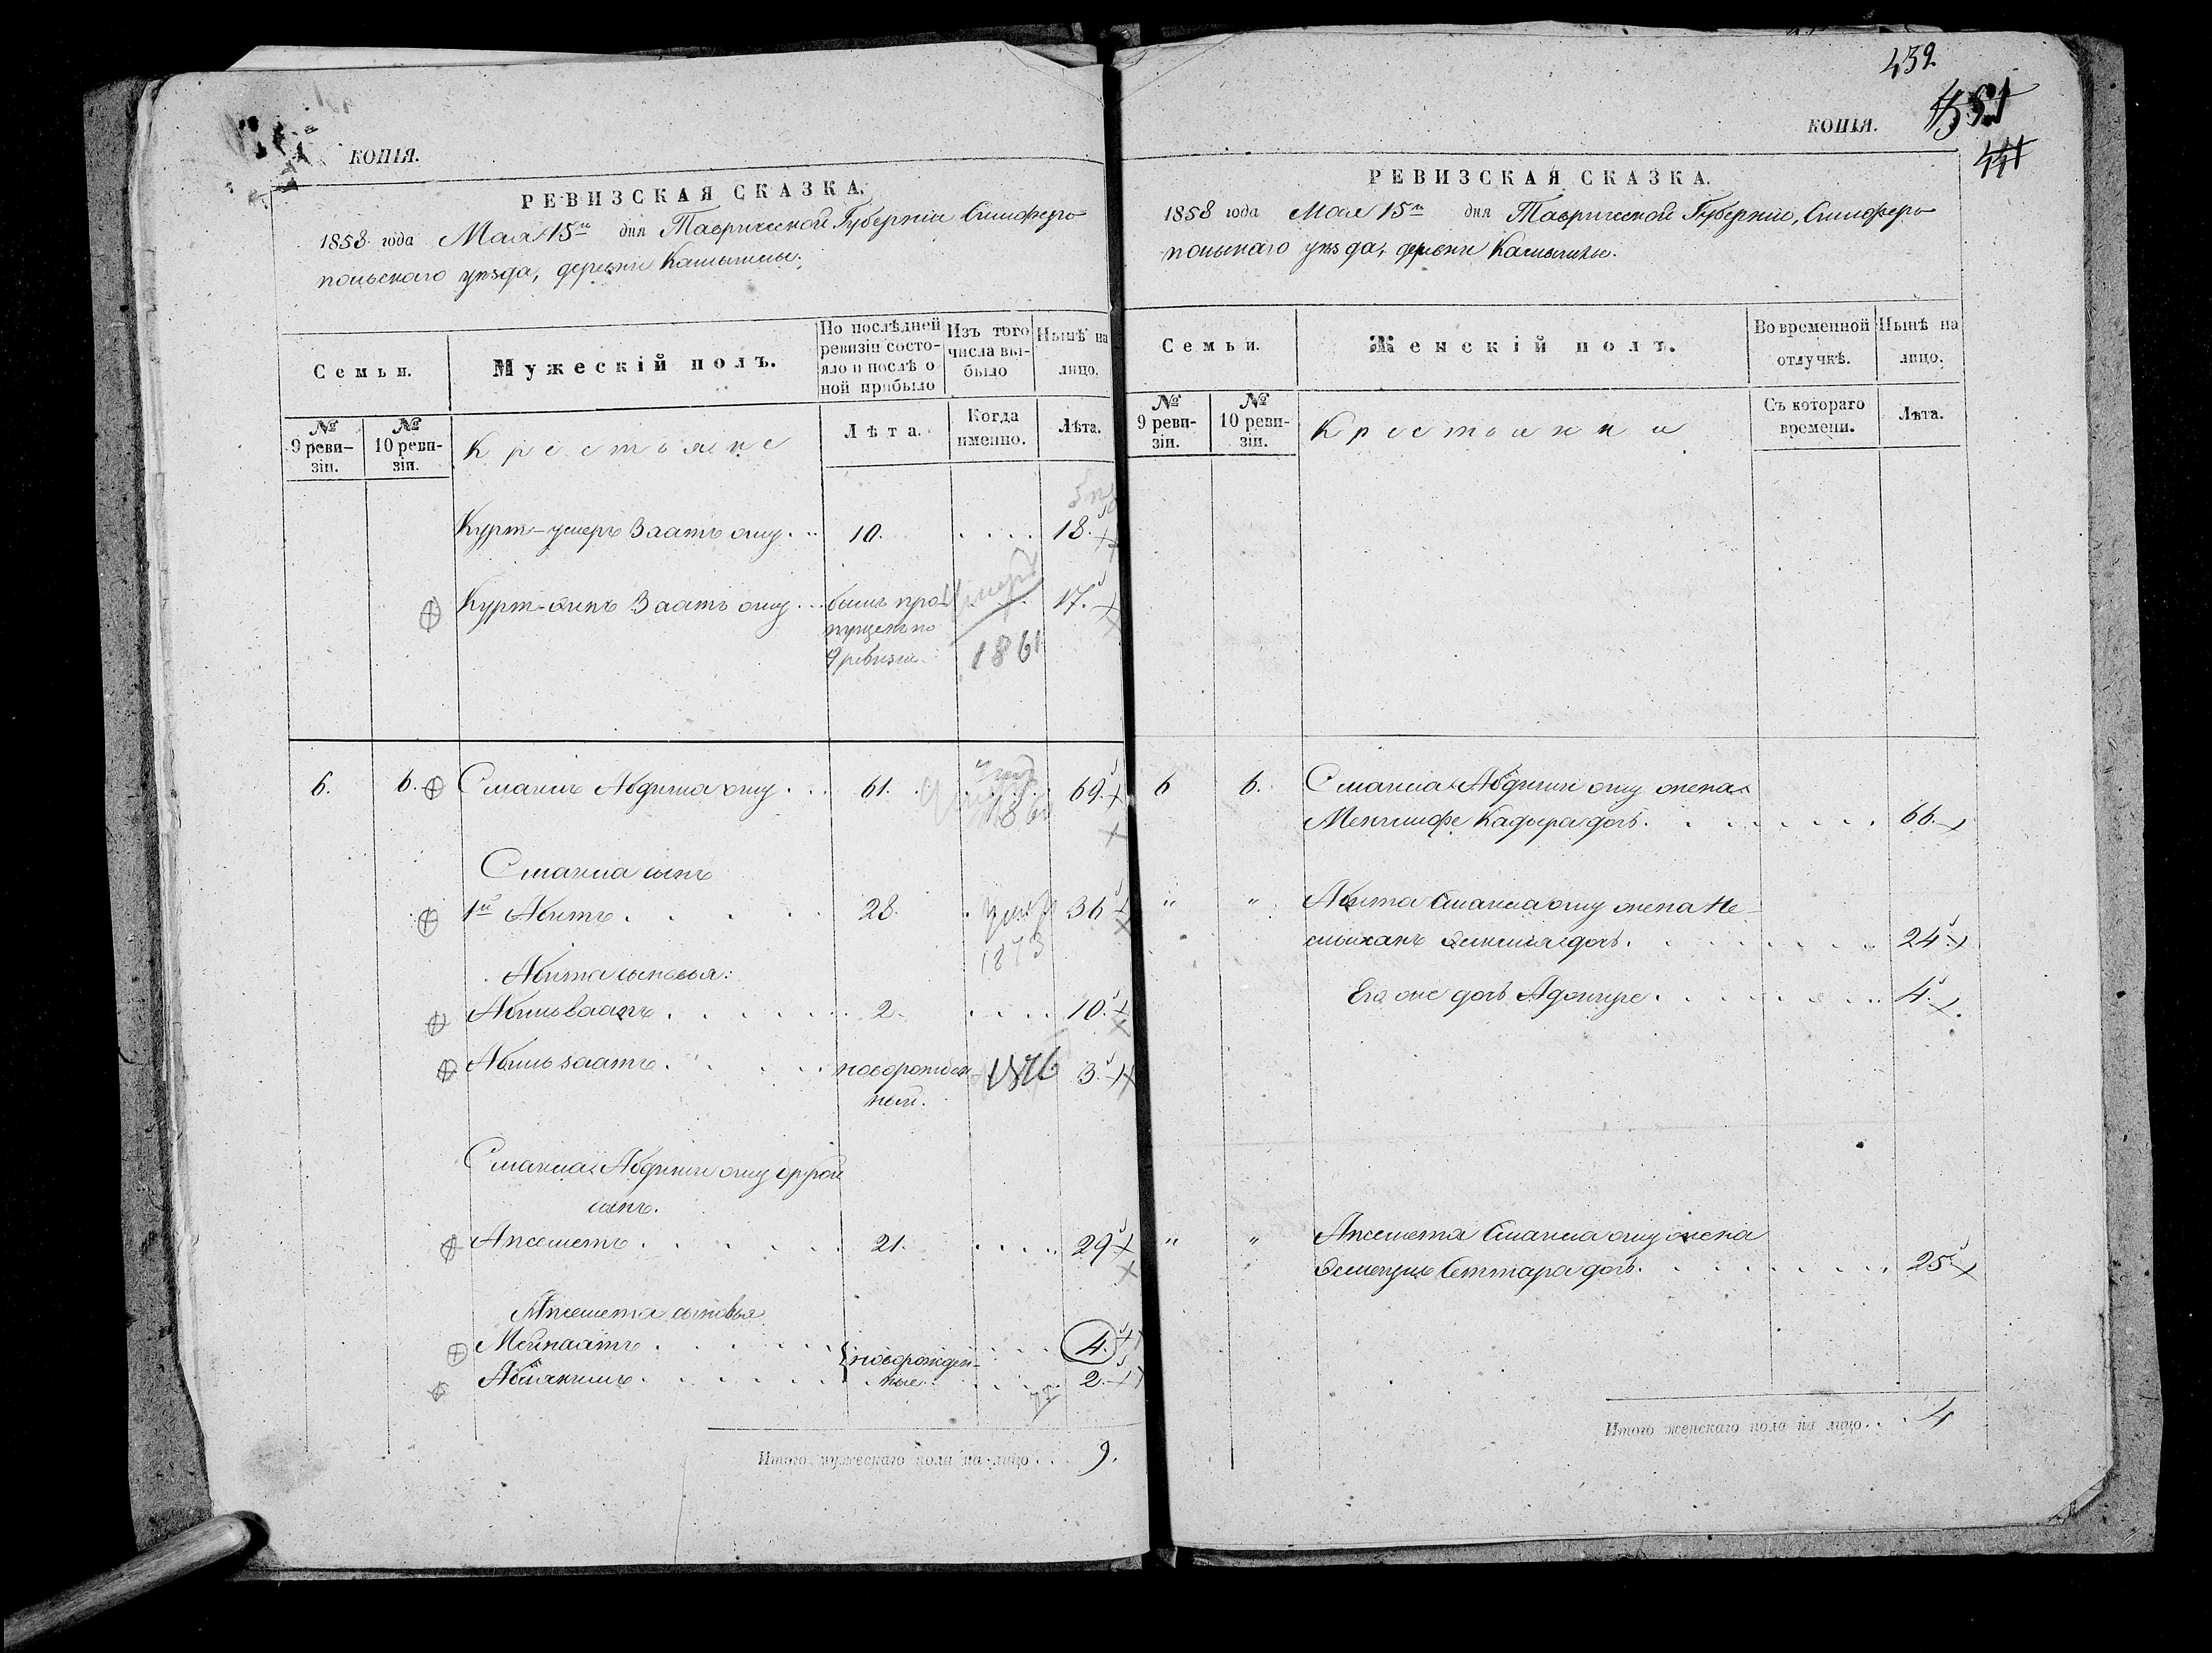 КОПІЯ.
РЕВИЗСКАЯ СКАЗКА.
1858 года Мая 15го дня Таврической Губерніи Симферо-
польскаго уѣзда, деревни
Семьи.
Мужескій полъ.
По послѣдней ревизіи состояло и послѣ оной прибыло
Изъ того числа выбыло
Нынѣ на лицо.
№ 9 ревизіи.
№ 10 ревизіи.
Крестьяне
Лѣта.
Когда именно.
Лѣта.
Курт-умеръ Ваатъ оглу . . . 10. . . . . 18.
Курт-бипъ Ваатъ оглу . . . былъ про- Умеръ 17.
пущенъ по
9 ревизіи 1861
6. 6. Смаилъ Абдиша оглу . . . 61. 69.
Смаила сынъ
1й Абитъ . . . . 28. умер 36
1873
Абита сыновья:
Абильваапъ . . . . . 2. . . . . 10.
Абильзаатъ . . . . новорожден- 1876 3.
ный.
Смаила Абдиши оглу другой
сынъ.
Апсеметъ . . . . . 21. . . . . 29
Апсемета сыновья
Мейнаатъ . . . . новорожден- . . . 4.
. . . . . ные. . . . 2.
Итого мужескаго пола на-лицо . . . 9.
439
КОПІЯ.
РЕВИЗСКАЯ СКАЗКА.
1858 года Мая 15го дня Таврической Губерніи, Симферо-
польскаго уѣзда, деревни
Семьи.
Женскій полъ.
Во временной отлучкѣ.
Нынѣ на лицо.
№ 9 ревизіи.
№ 10 ревизіи.
Крестьянки
Съ котораго времени.
Лѣта.
6 6. Смаила Абдиши оглу жена
Кадыра дочь. . . . . . . . 66.
" " Абита Смаила оглу жена Не-
дочь. . . . . . . 24
Его же дочь . . . . . . . 4.
" " Апсемета Смаила оглу жена
Сеттара дочь. . . . . . . 25
Итого женскаго пола на лицо . . . 4